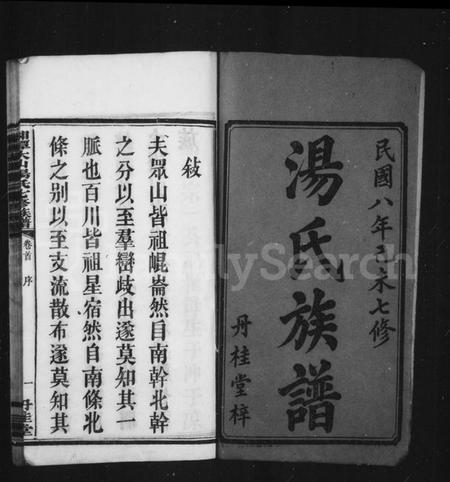 民國八年己未七修
湯氏族譜
丹桂堂梓
敍
夫眾山皆祖崐崙然自南幹北幹
之分以至羣巒歧出遂莫知其一
脈也百川皆祖星宿然自南條北
條之别以至支流散布遂莫知其
湯氏七修族譜
卷首
序
一
丹桂堂
FamilySearch